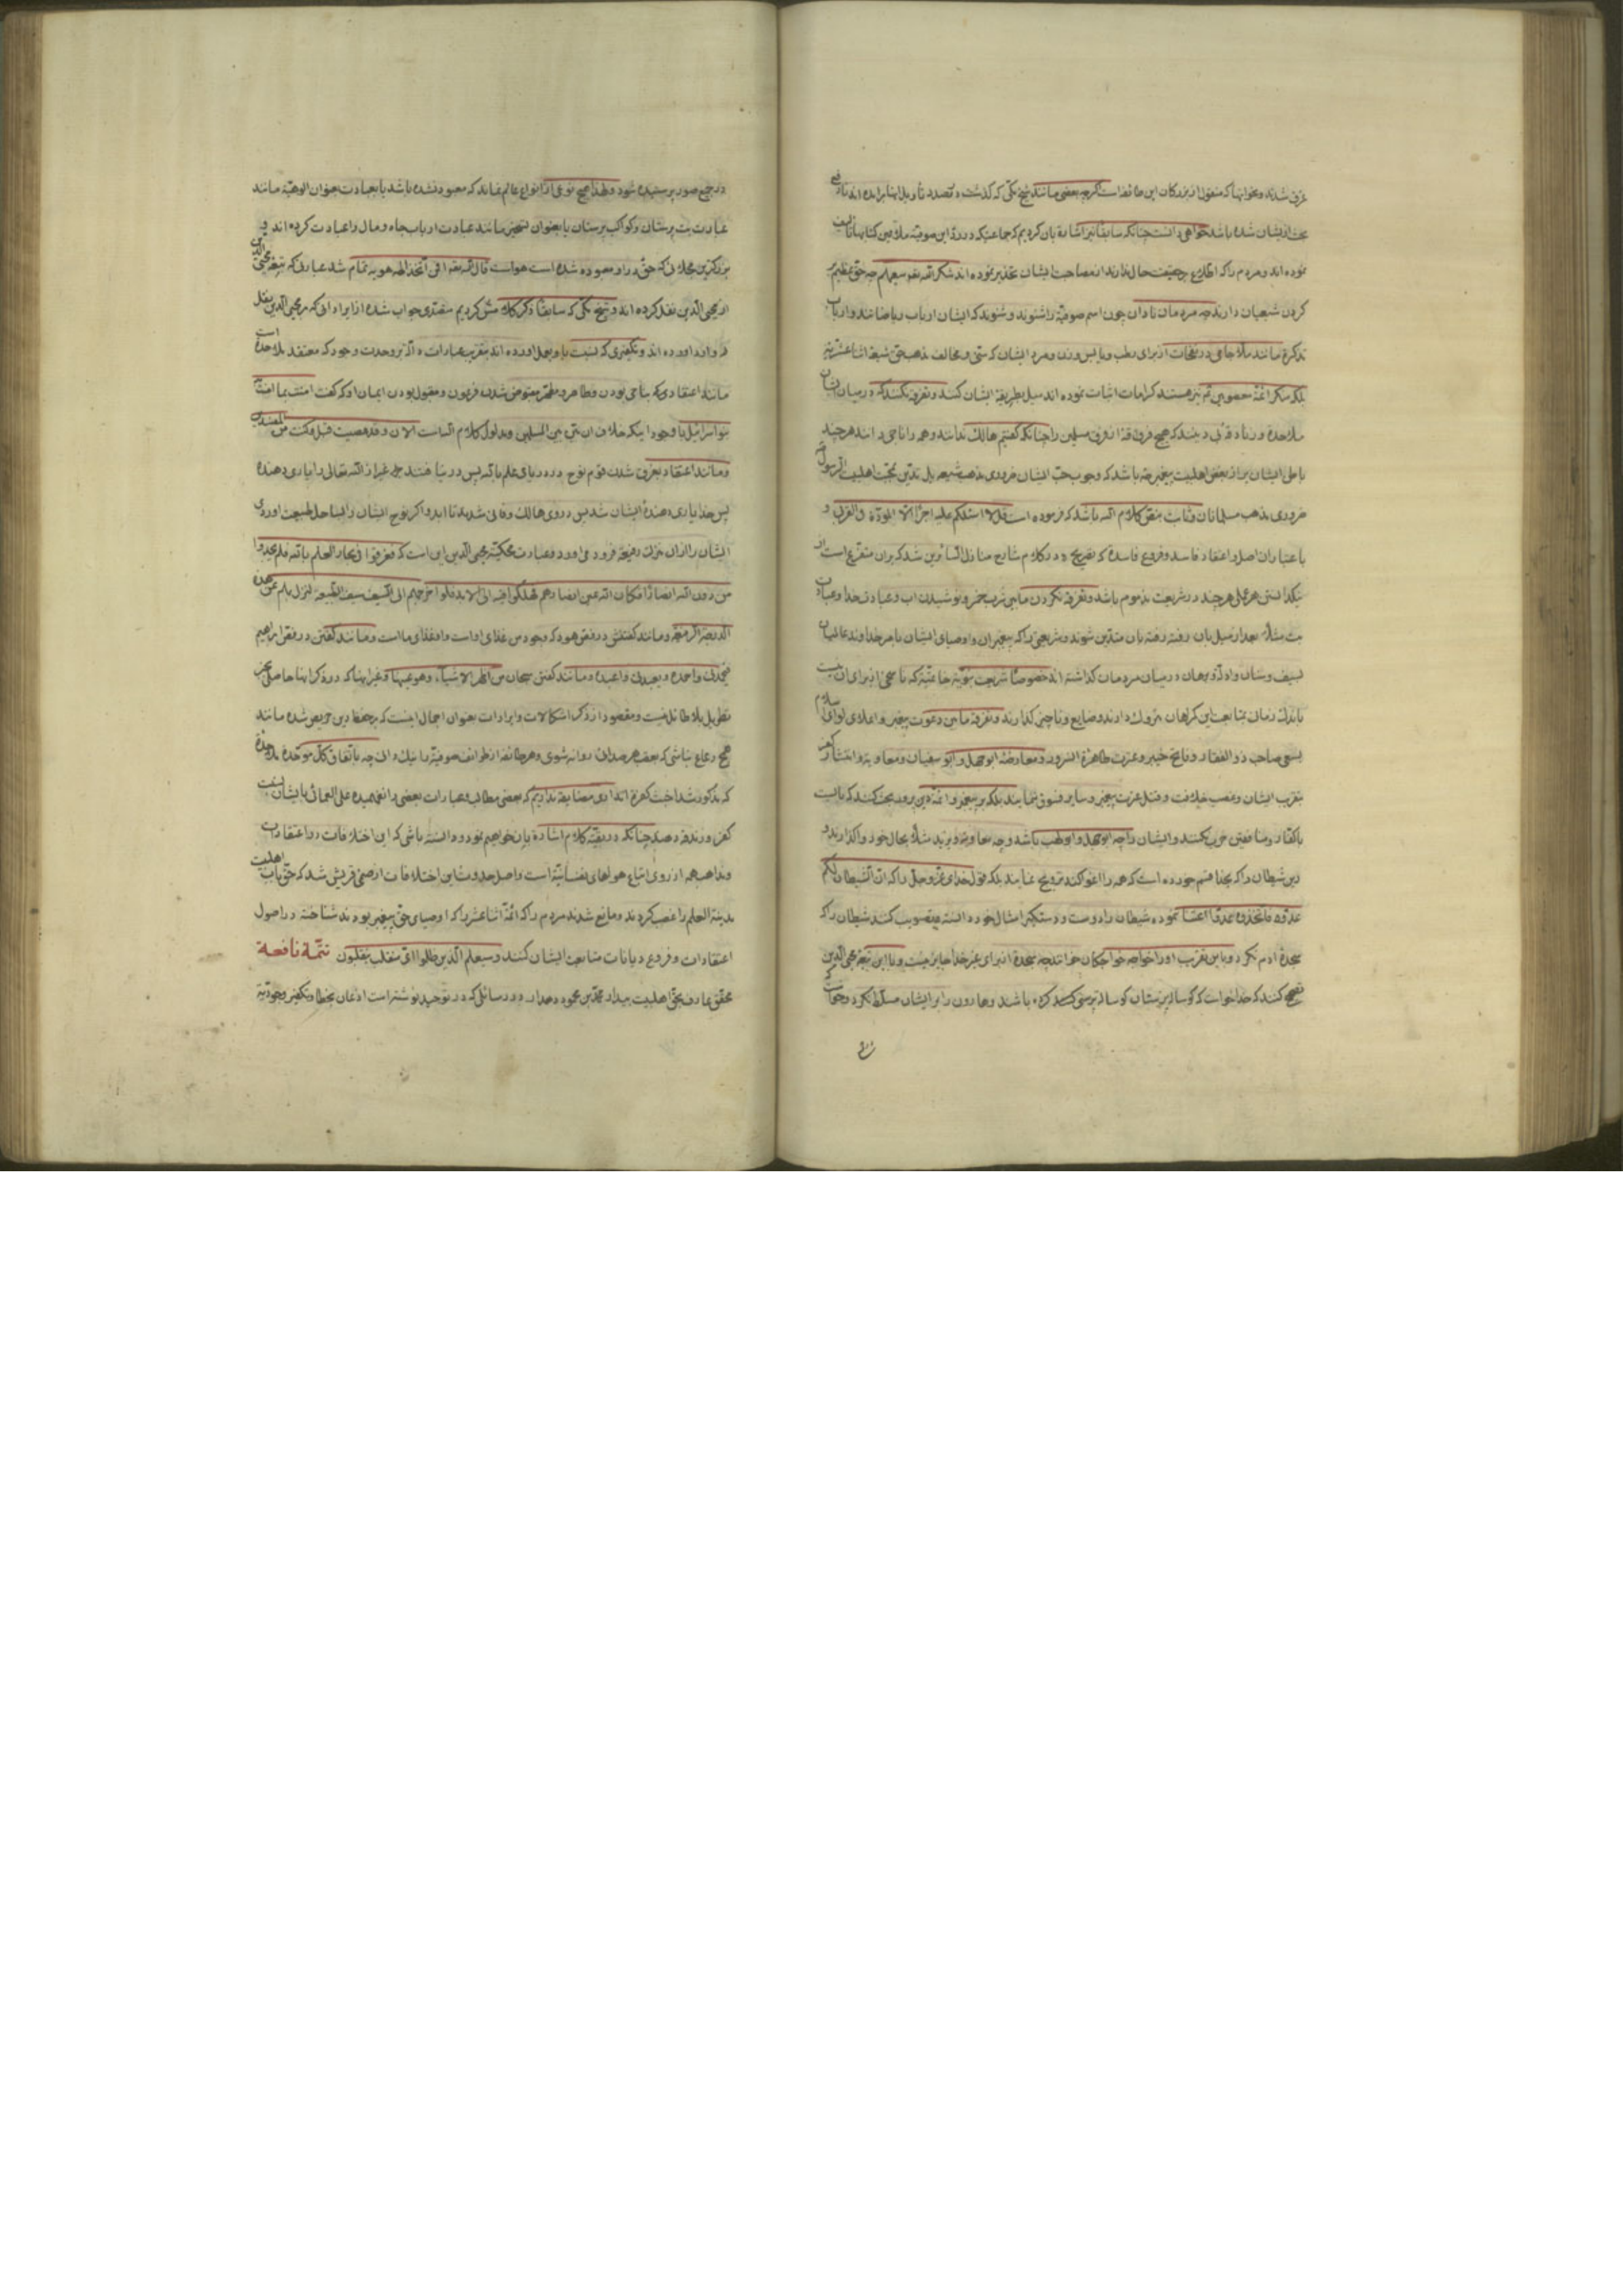 غرق شدند و بخوابها که منقول از بزرکان این طائفه است اکرچه بعضی مانند شیخ مکی که کذشت در تصدد تأویل اینها برامده اند
بحث از ایشان شده باشد خواهی دانست چنانکه سابقا نیز اشاره بان کردیم که جماعتیکه در رد این صوفیه ملاعین کتابها تالیف
نموده اند و مردم را که اطلاع بر حقیقت حال ندارند از مصاحبت ایشان تحذیر نموده اند شکر الله تعالی سعیهم چه حق عظیم بر
کردن شیعیان دارند چه مردمان نادان چون اسم صوفیه را شنوند و شنوند که ایشان ارباب ریاضاتند و ارباب
تذکره مانند ملا جامی در نفحات از برای رطب و یابس وزن و مرد ایشان که سنی و مخالف مذهب حق شیعه اثنا عشریه
بلکه منکر ائمه معصومین نیز هستند کرامات اثبات نموده اند میل بطریقه ایشان کنند و تفرقه نکنند که در میان ایشان
ملاحده و زنادقه بی دینند که هیچ فرقه از فرق مسلمین را چنانکه کفتیم هالک ندانند و همه را ناجی دانند هر چند
باطل ایشان بر از بغض اهلبیت پیغمبر باشد که وجوب حب ایشان ضروری مذهب شیعه بل تدین بمحبت اهلبیت الرسول
ضروری مذهب مسلمانان و ثابت بنص کلام الله باشد که فرموده است قل لا اسئلکم علیه اجرا الا المودة فی القربی و
باعتبار ان اصل و اعتقاد فاسد و فروع فاسده که بصریح در کلام شارح منازل السائرین شد که بران متفرع است از
نیکدانستن هر عملی هر چند در شریعت مذموم باشد و تفرقه نکردن مابین شرب خمر و نوشیدن اب و عبادت خدا و عبادت
بت مثلا بعد از میل بان رفته رفته بان متدین شوند و شریعتی را که پیغمبران و اوصیای ایشان بامر خداوند عالمیان
بسیف و سنان و ادله و برهان در میان مردمان کذاشته اند خصوصا شریعت نبویه خاتمیه که ناسخی از برای ان نیست
باندک زمان بمتابعت این کمراهان متروک دارند و ضایع و ناچیز کذارند و تفرقه مابین دعوت پیغمبر و اعلای لوای اسلام
بسعی صاحب ذو الفقار و فاتح خیبر و عترت طاهره النرور و معارضه ابو جهل و ابو سفیان و معاویه و انتشار کفر
بتقریب ایشان و غصب خلافت و قتل عترت پیغمبر و سایر فسوق ننمایند بلکه بر پیغمبر و ائمه دین پرور بحث کنند که بایست
باکفار و منافقین حرب نکنند و ایشان را چه ابو جهل و ابو لهب باشد و چه معاویه و یزید مثلا بحال خود واکذارند و
دین شیطان را که بخدا قسم خورده است که همه را اغوا کند ترویج نمایند بلکه قول خدای عز و جل را که ان الشیطان لکم
عدو فاتخذوه عدوا اعتنا ننموده شیطان را دوست و دستکیر امثال خود دانسته تصویب کنند شیطان را که
سجده ادم نکرد و باین تقریب او را خواجه خواجکان خوانند چه سجده از برای غیر خدا جایز نیست و با این تبعه محی الدین
تصحیح کنند که خدا خواست که کوساله پرستان کوساله پرستی کرده باشند و هارون را بر ایشان مسلط نکرد و خواست
در جمیع صور پرستیده شود و لهذا هیچ نوعی از انواع عالم نماند که معبود نشده باشد یا بعبادت بعنوان الوهیه مانند
عبادت بت پرستان و کواکب پرستان یا بعنوان تسخیر مانند عبادت ارباب جاه و مال را عبادت کرده اند و
بزرکترین مجلائی که حق در او معبود شده است هواست قال الله تعالی افرایت من اتخذ الهه هویه تمام شد عبارتی که تبعه محیی الدین
از محیی الدین نقل کرده اند و شیخ مکی که سابقا ذکر کلامش کردیم متصدی جواب شده از ایراداتی که بر محیی الدین بنقل
وارد اورده اند و تکفیری که نسبت باو بعمل اورده اند بتقریب عبارات داله بر وحدت وجود که معتقد ملاحده است
مانند اعتقادی که بناجی بودن و طاهر و مطهر مقبوض شدن فرعون و مقبول بودن ایمان او که کفت امنت بما امنت
بنو اسرائیل با وجود اینکه خلاف ان بین المسلمین و مدلول کلام الله است الان و قد عصیت قبل و کنت من المفسدین
و مانند اعتقاد بغرق شدن قوم نوح در دریای علم بالله پس در نیافتند جز غیر از الله تعالی را یاری دهنده
پس خدا یاری دهنده ایشان شد پس در وی هالک و فانی شدند تا ابد و اکر نوح ایشان را بساحل طبیعت اوردی
ایشان را از ان منزلت رفیعه فرود می اورد و عبارت محکیه محیی الدین این است که فغرقوا فی بحار العلم بالله فلم یجدوا
من دون الله انصارا فکان الله عین انصارهم فهلکوا فیه الی الابد فلو اخرجهم الی السیف سیف الطبیعه لنزل بهم عن هذه
الدرجة الرفیعة و مانند کفتنش در فص هود که وجود من غذای اوست و او غذای ما است و مانند کفتن در فص ابراهیم
فیحمدنی و احمده و یعبدنی و اعبده و مانند کفتن سبحان من اظهر الاشیاء و هو عینها و غیر اینها که در ذکر اینها حاصلی بجز
تطویل بلا طائل نیست و مقصود از ذکر اشکالات و ایرادات بعنوان اجمال اینست که بر حفظ دین حریص شده مانند
همج رعاع نباشی که بعقب هر صدائی روانه شوی و هر طائفه از طوائف صوفیه را نیک دانی چه باتفاق کل موحده ملاحده
که مذکور شد اخبث کفره اند اری مضایقه نداریم که بعضی مطالب و عبارات بعضی را نفهمیده علی العمائ بایشان نسبت
کفر و زندقه دهند چنانکه در بقیه کلام اشاره بان خواهیم نمود و دانسته باشی که این اختلافات در اعتقادات
و مذاهب همه از روی اتباع هواهای نفسانیه است و اصل حدوث این اختلافات از صنمی قریش شد که حق باب اهلبیت
مدینة العلم را غصب کردند و مانع شدند مردم را که ائمه اثنا عشر را که اوصیای حق پیغمبر بودند شناخته در اصول
اعتقادات و فروع دیانات متابعت ایشان کنند و سیعلم الذین ظلموا ای منقلب ینقلبون تتمة نافعة
محقق عارف بحق اهلبیت بیدار محمد بن محمود دهدار در رسائلی که در توحید نوشته است اذعان بخطا و تکفیر وجودیه